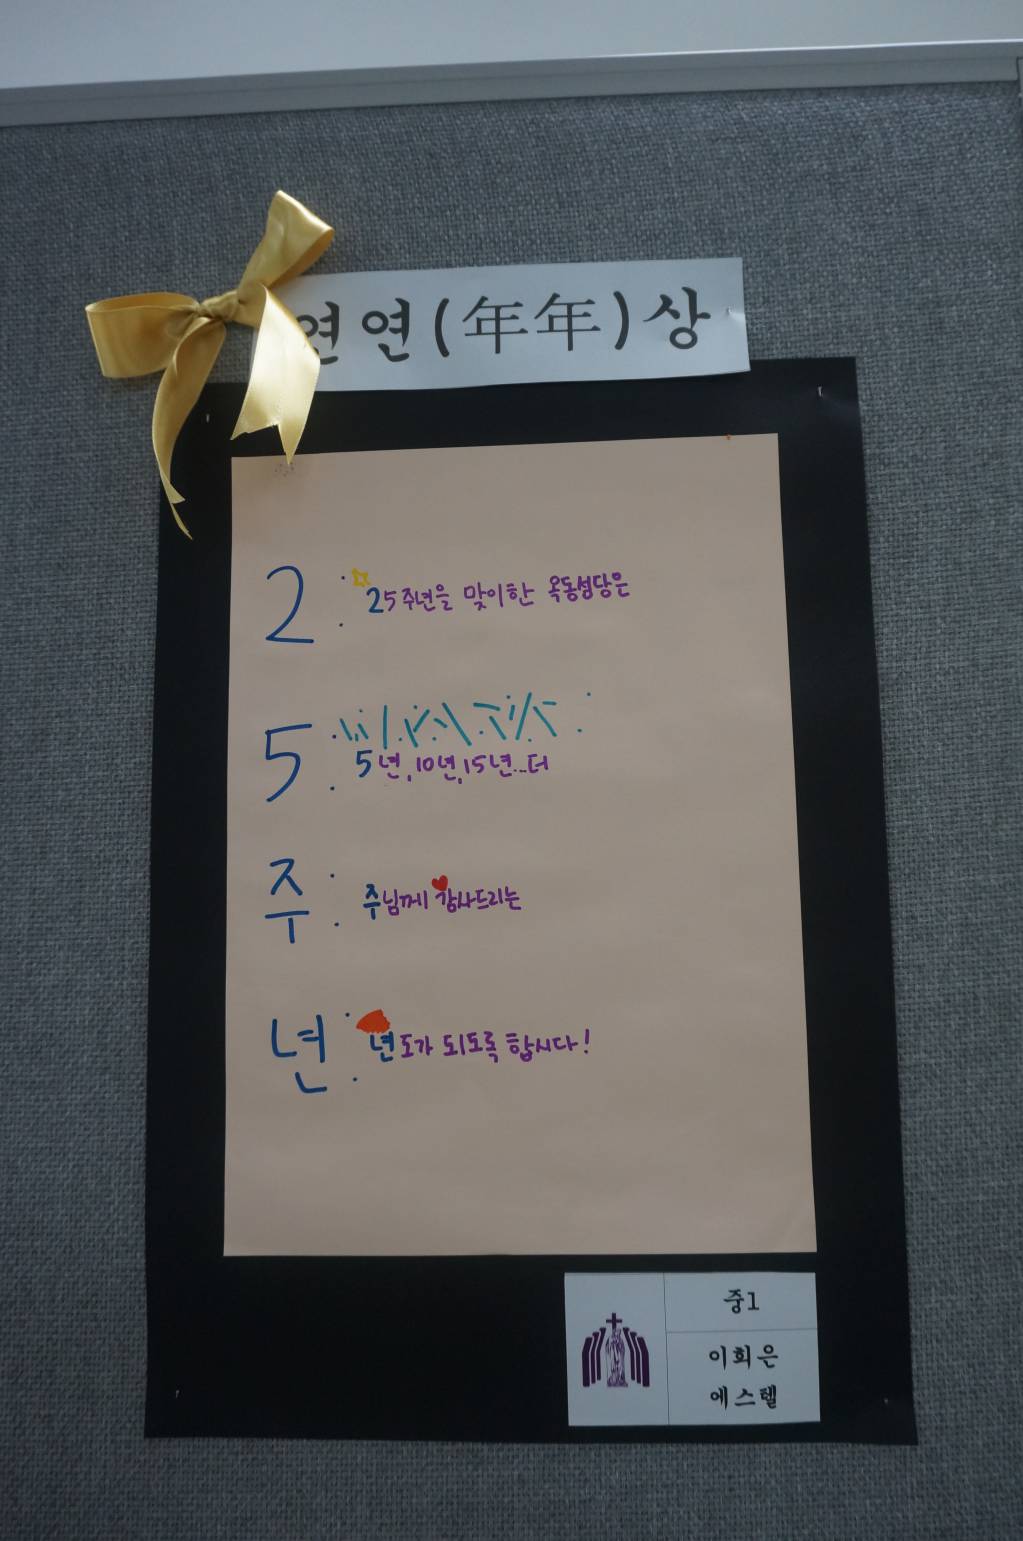 연연(年年)상
2 : 25주년을 맞이한 옥동성당은
5 : 5년, 10년, 15년...더
주 : 주님께 감사드리는
년 : 년도가 되도록 합시다!
중1
이회은
에스텔